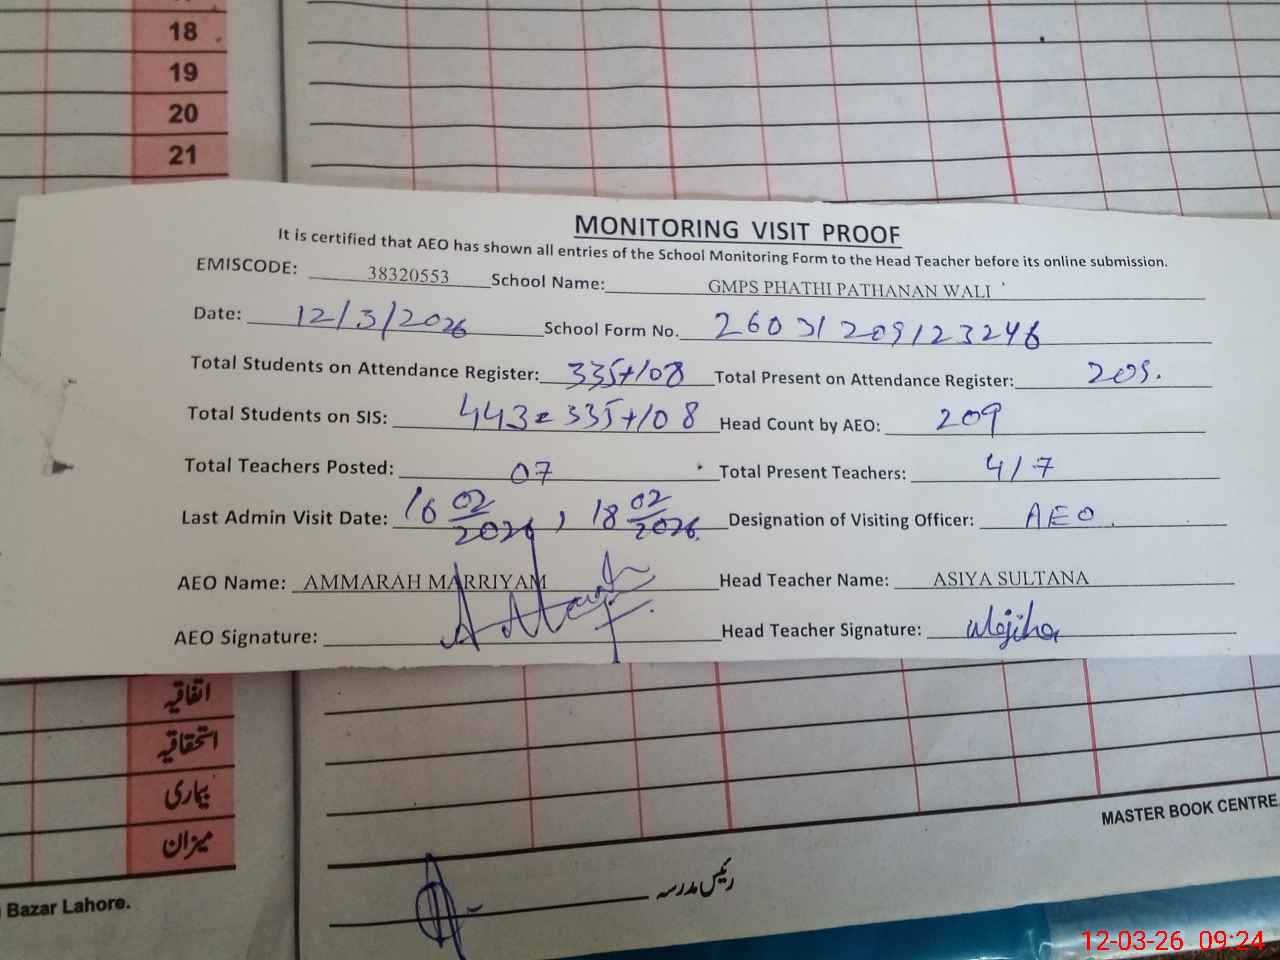 18
19
20
21
MONITORING VISIT PROOF
It is certified that AEO has shown all entries of the School Monitoring Form to the Head Teacher before its online submission.
EMISCODE: 38320553 School Name: GMPS PHATHI PATHANAN WALI
Date: 12/3/2026 School Form No. 260312091 23246
Total Students on Attendance Register: 335+108 Total Present on Attendance Register: 209.
Total Students on SIS: 443=335+108 Head Count by AEO: 209
Total Teachers Posted: 07 Total Present Teachers: 4/7
Last Admin Visit Date: 16 02/2026, 18 02/2026. Designation of Visiting Officer: AEO
AEO Name: AMMARAH MARRIYAM Head Teacher Name: ASIYA SULTANA
AEO Signature: Head Teacher Signature: Wajiha
اتفاقیہ
استحقاقیہ
بیماری
میزان
MASTER BOOK CENTRE
رئیس مدرسہ
Bazar Lahore.
12-03-26 09:24